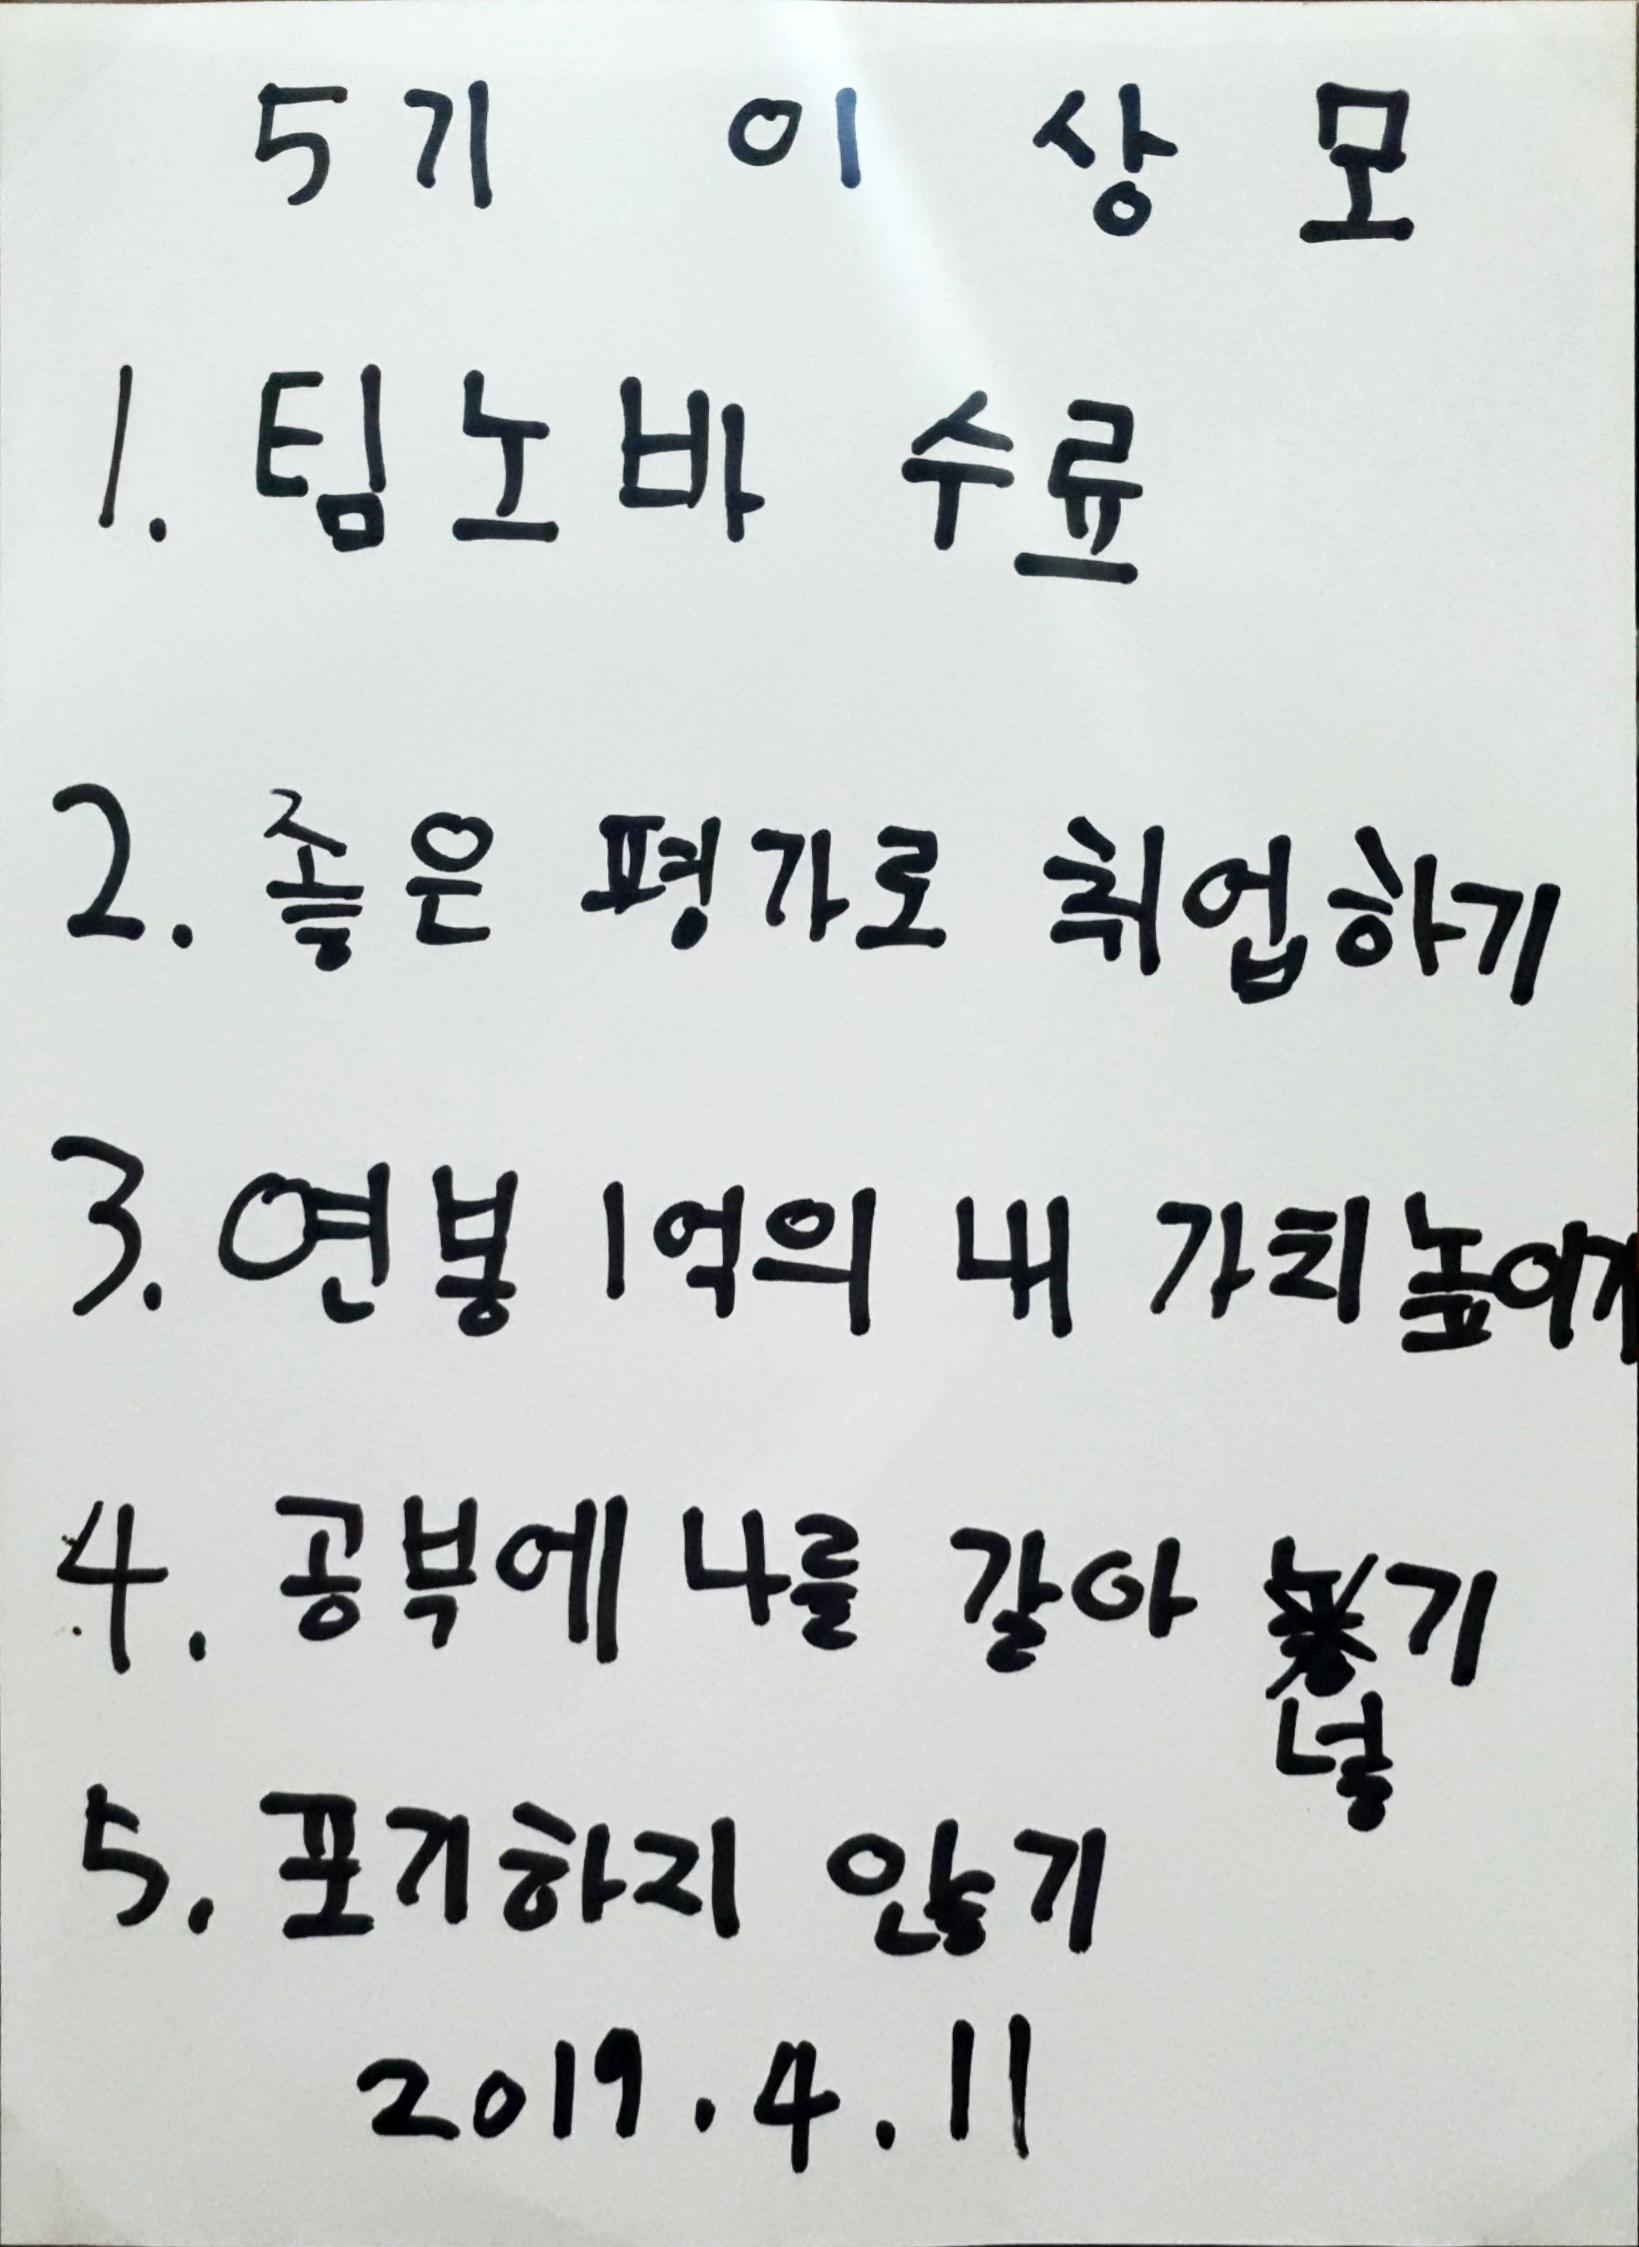 5기 이상모
1. 팀노바 수료
2. 좋은 평가로 취업하기
3. 연봉 1억의 내 가치높이기
4. 공부에 나를 갈아 넣기
5. 포기하지 않기
2019.4.11